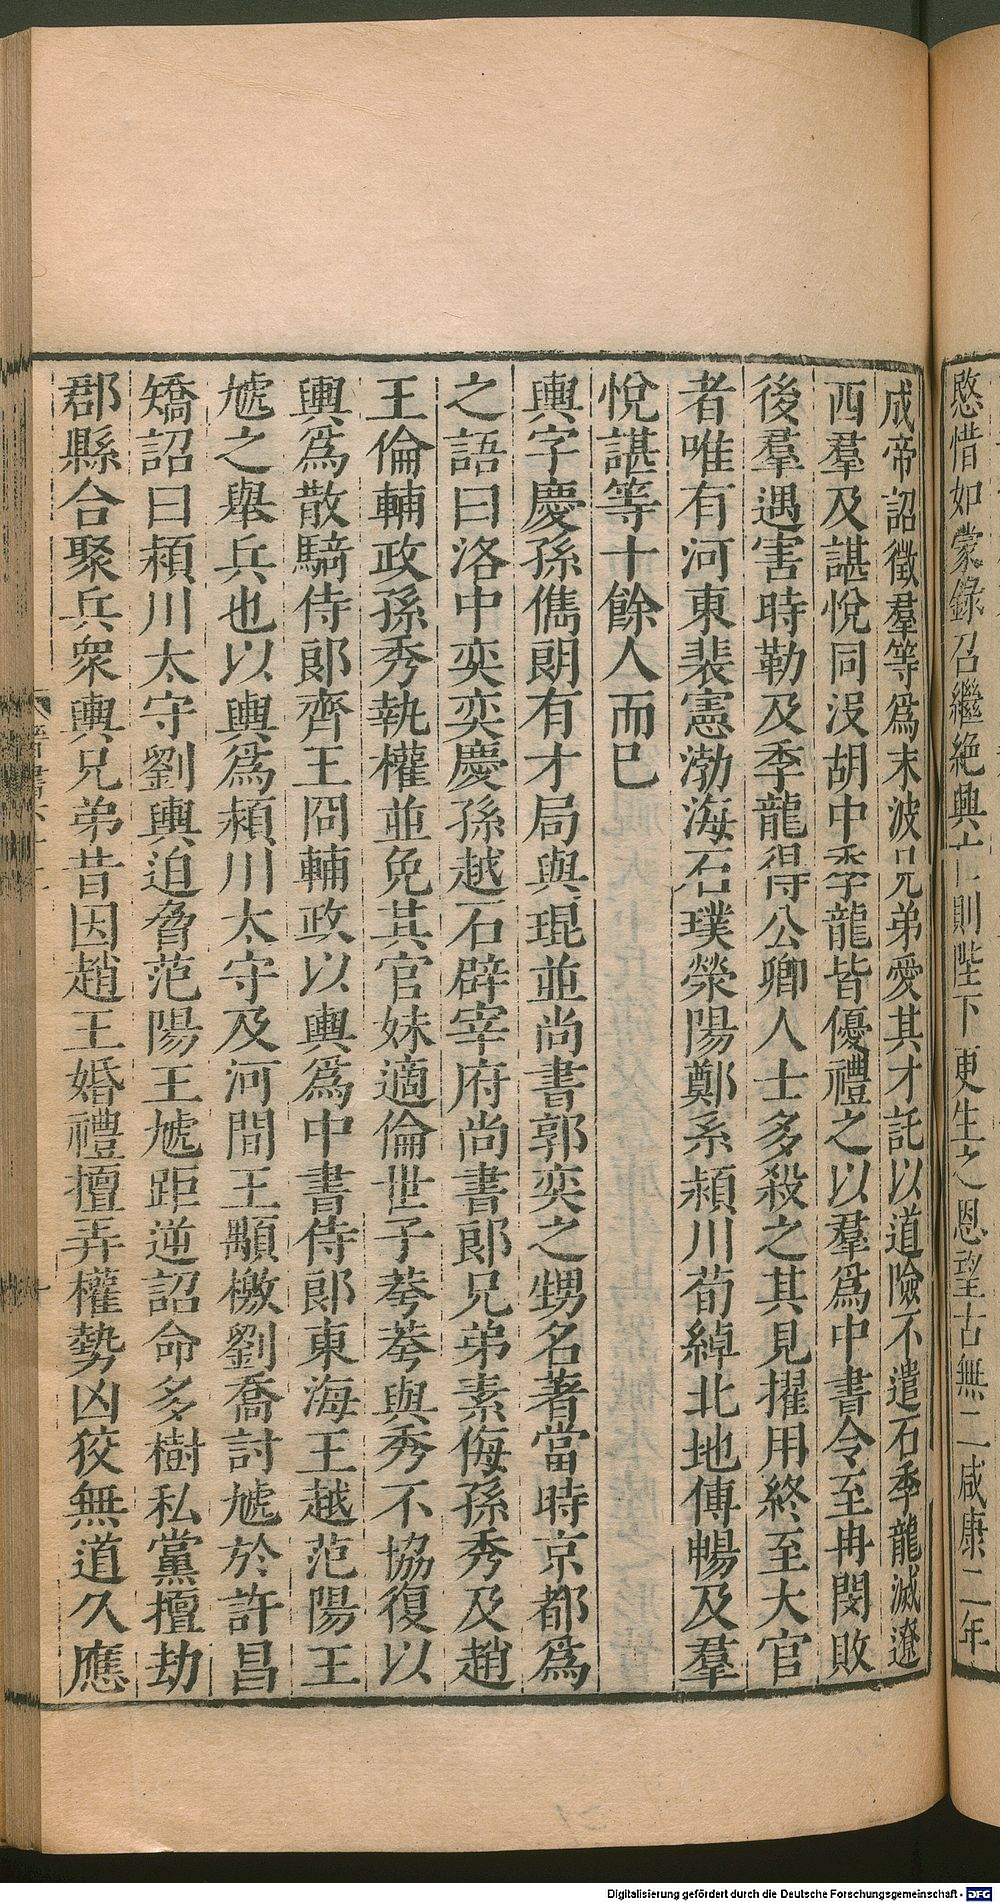 愍惜如蒙錄召繼絶興亡則陛下更生之恩望古無二咸康二年
成帝詔徵羣等爲末波兄弟愛其才託以道險不遣石季龍滅遼
西羣及諶悅同没胡中季龍皆優禮之以羣爲中書令至冉閔敗
後羣遇害時勒及季龍得公卿人士多殺之其見擢用終至大官
者唯有河東裴憲渤海石璞滎陽鄭系潁川荀綽北地傅暢及羣
悅諶等十餘人而已
輿字慶孫儁朗有才局與琨並尚書郭奕之甥名著當時京都爲
之語曰洛中奕奕慶孫越石辟宰府尚書郎兄弟素侮孫秀及趙
王倫輔政孫秀執權並免其官妹適倫世子荂荂與秀不協復以
輿爲散騎侍郎齊王冏輔政以輿爲中書侍郎東海王越范陽王
虓之舉兵也以輿爲潁川太守及河間王顒檄劉喬討虓於許昌
矯詔曰潁川太守劉輿迫脅范陽王虓距逆詔命多樹私黨擅劫
郡縣合聚兵衆輿兄弟昔因趙王婚禮擅弄權勢凶狡無道久應
Digitalisierung gefördert durch die Deutsche Forschungsgemeinschaft - DFG